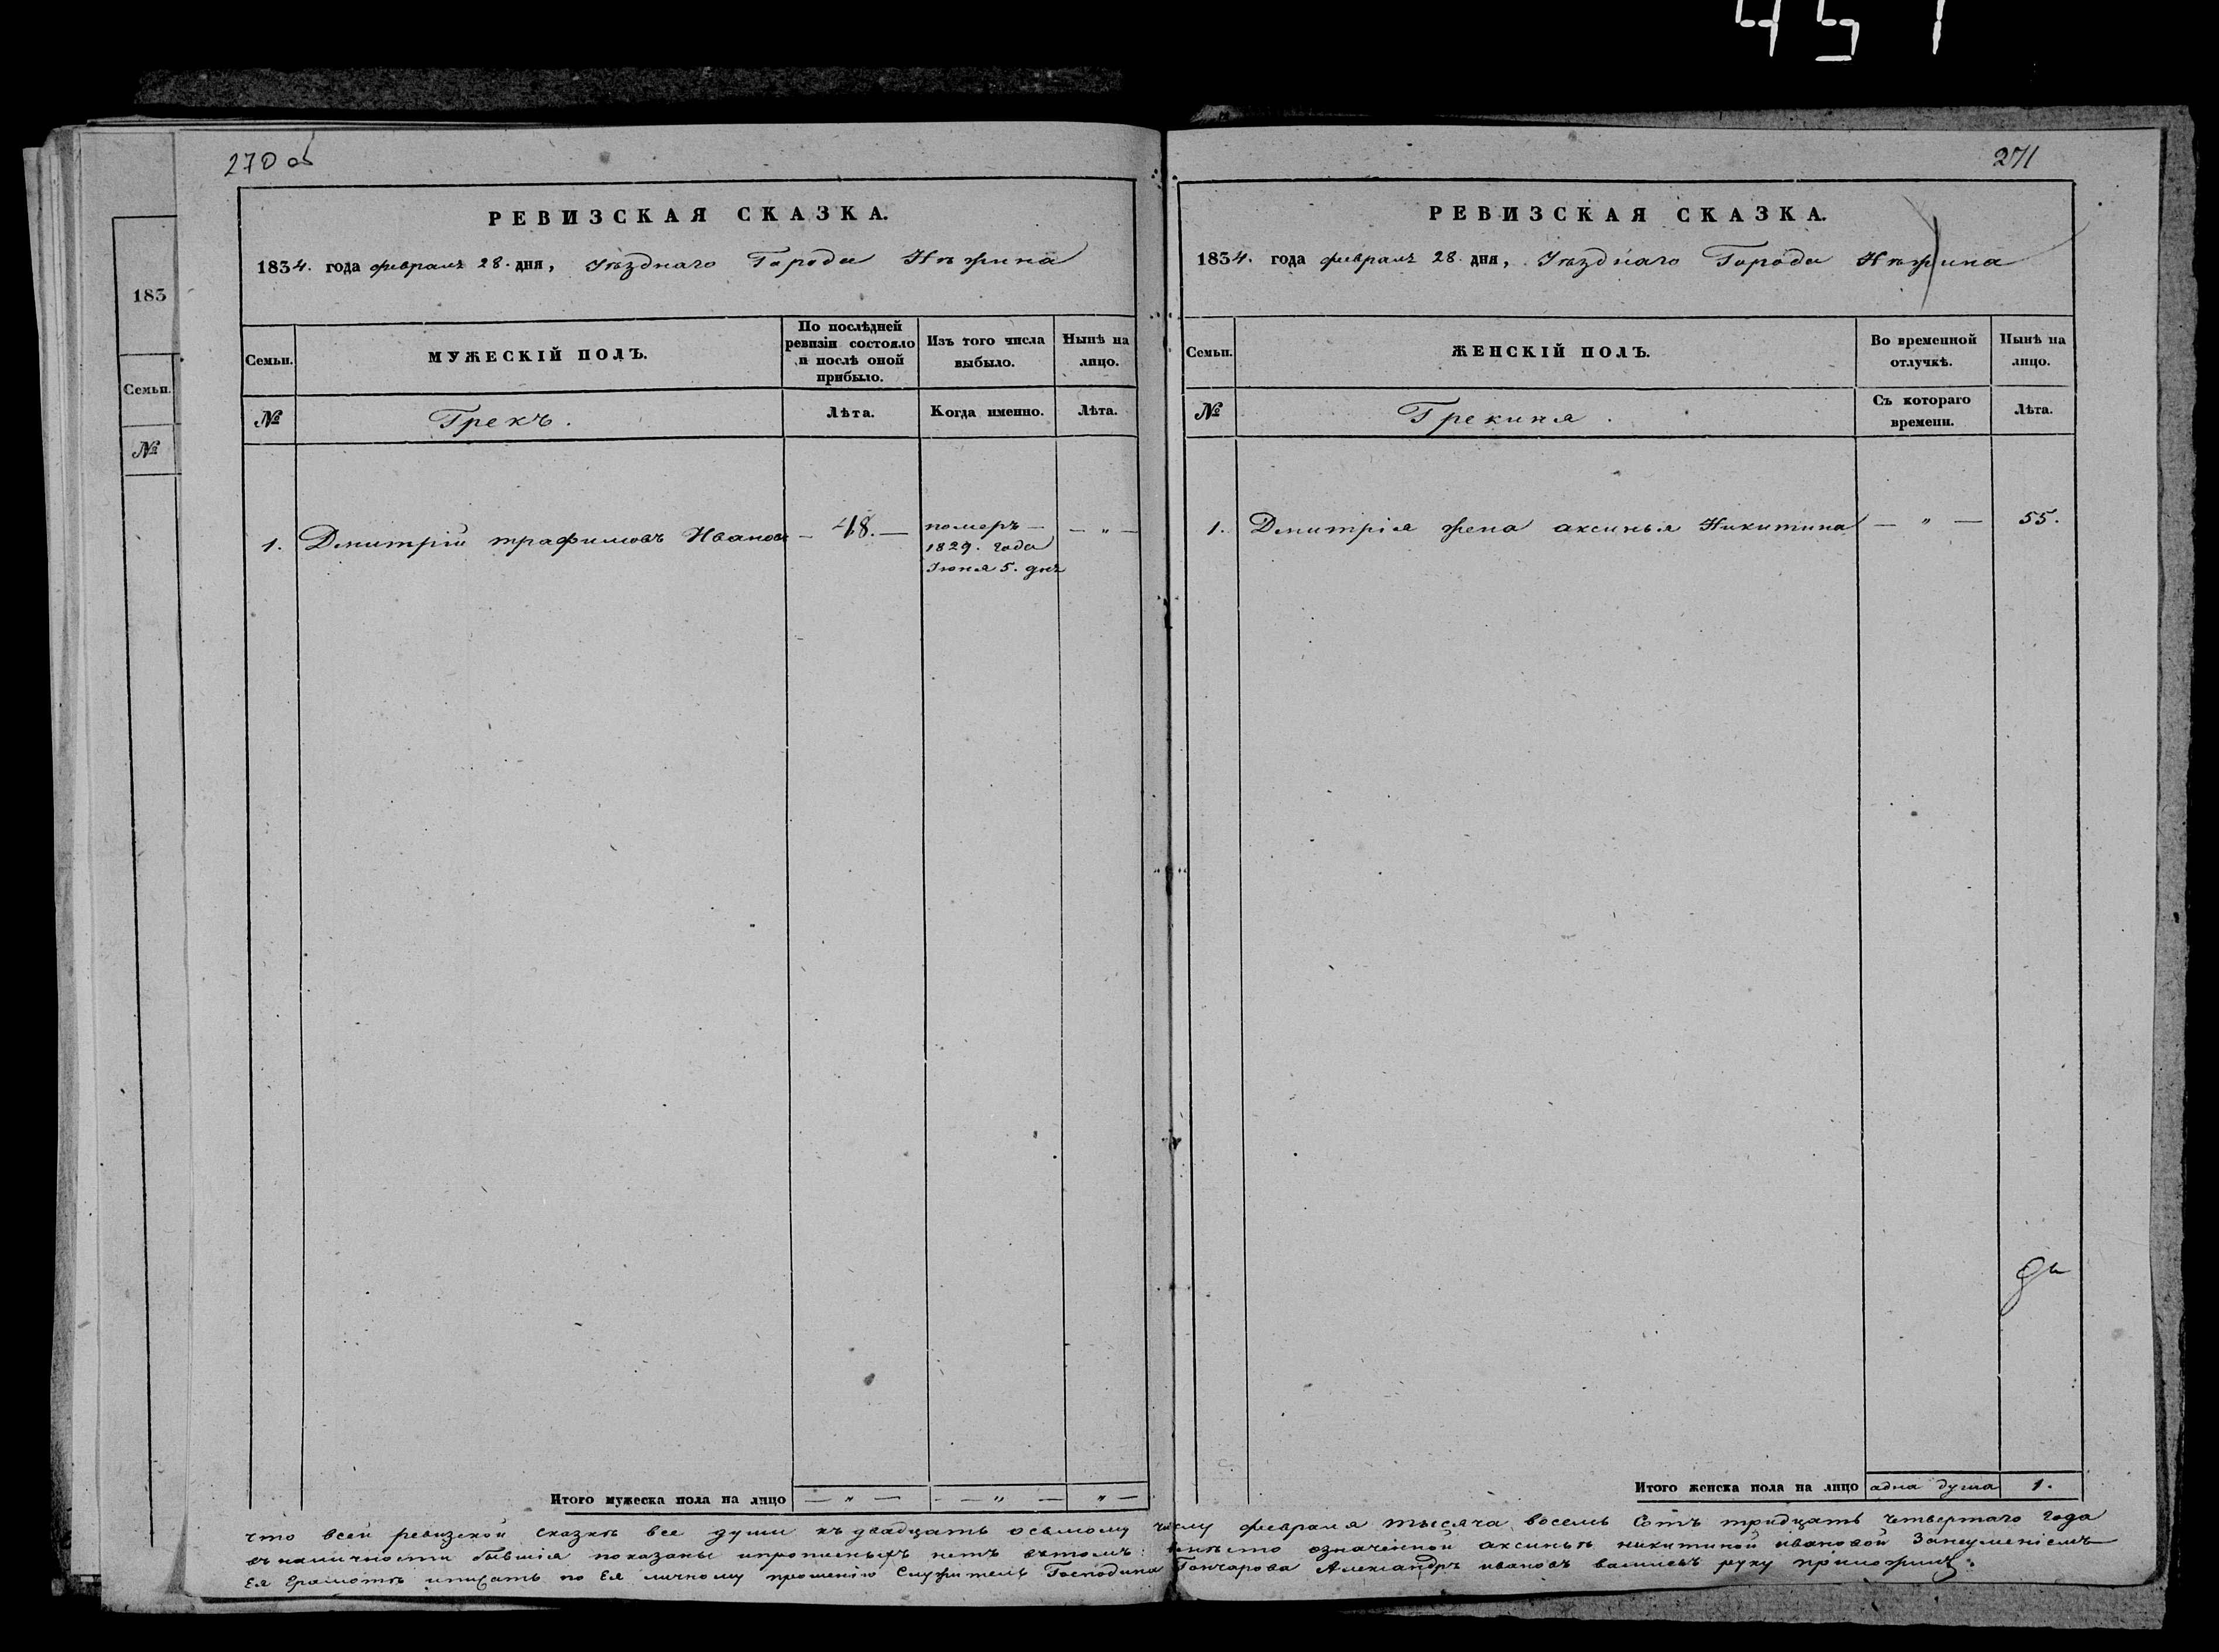 451
270 об
РЕВИЗСКАЯ СКАЗКА.
1834. года февраля 28. дня, Уѣзднаго Города Нѣжина
183
Семьи.
№
Семьи.
МУЖЕСКІЙ ПОЛЪ.
По послѣдней ревизіи состояло и послѣ оной прибыло.
Изъ того числа выбыло.
Нынѣ на лицо.
№
Грекъ.
Лѣта.
Когда именно.
Лѣта.
1. Дмитрій трафимовъ Ивановъ — 48. —
померъ —
1829. года
Іюня 5. дня
— „ —
Итого мужеска пола на лицо — „ — — „ — „ —
271
РЕВИЗСКАЯ СКАЗКА.
1834. года февраля 28. дня, Уѣзднаго Города Нѣжина
Семьи.
ЖЕНСКІЙ ПОЛЪ.
Во временной отлучкѣ.
Нынѣ на лицо.
№
Грекиня.
Съ котораго времени.
Лѣта.
1. Дмитрія жена аксинья Никитина — „ — 55.
Итого женска пола на лицо адна душа 1.
что всей ревизской сказкѣ все души къ двадцать осьмому числу февраля тысяча восемь Сотъ тридцать четвертаго Года
въ наличности бывшія показаны ипрописныхъ нетъ вътомъ: вмѣсто означенной аксиньѣ никитиной ивановой Занеуменіемъ
Ея Грамотѣ иписать по Ея личному прошенію Служитель Господина Гончарова Александръ ивановъ руку приложилъ.